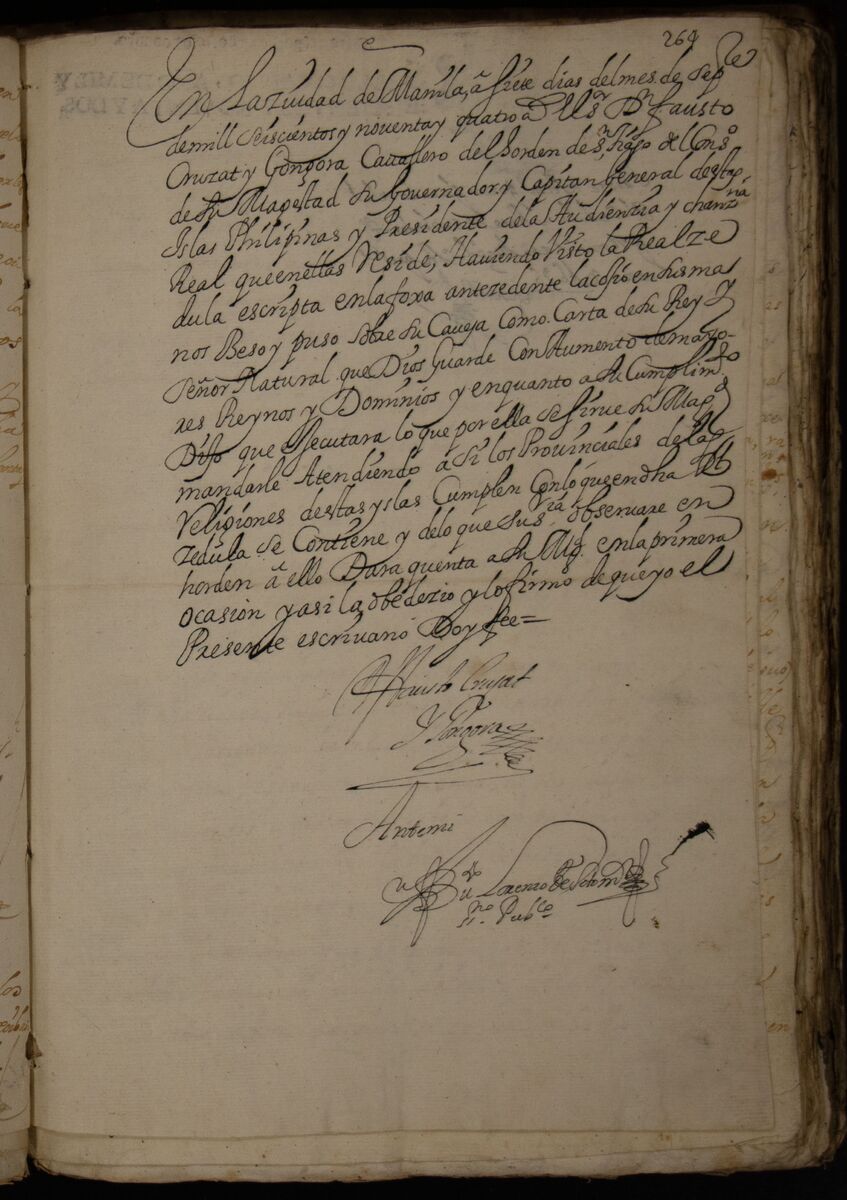 264
En la ziudad de Manila, a siete dias del mes de sepre
de mill seiscientos y noventa y quatro a.s el sr. Dn fausto
Cruzat y Gongora Cavallero del horden de s.r tiago del Conso
de Su Magestad Su Governador y Capitan general destas
Islas Philipinas y Presidente de la Audienzia y chanzria
Real que en ellas Reside; Haviendo Visto la Real ze
dula escripta en la foxa antezedente la cojio en sus ma
nos Beso y puso sobre su Caveza Como Carta de su Rey y
señor Natural que Dios Guarde Con Aumento de mayo-
res Reynos y Dominios y en quanto a su Cumplimto
Dijo que executara lo que por ella se sirve su Magd
mandarle Atendiendo a si los Provinciales de las
religiones destas yslas Cumplen Con lo que en dha Rl
zedula se Contiene y de lo que sus ria observare en
horden a ello Dara quenta a su Mgd. en la primera
ocasion y asi la obedezio y lo firmo de que yo el
Presente escrivano Doy fee=
fausto Cruzat
Y Gongora
Antemi
Lorenzo
no Pubco